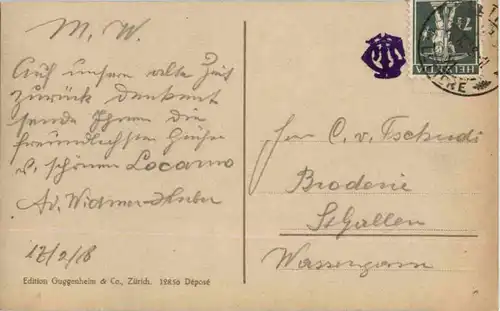 M. W.
Auf unsere alte Zeit
zurück denkend
sende Ihnen die
freundlichsten Grüsse
v. schönen Locarno
Ad. Widmer-Huber
17/2/18
Edition Guggenheim & Co., Zürich. 12856 Déposé
HELVETIA
7½
Herr C. v. Tschudi
Broderie
St Gallen